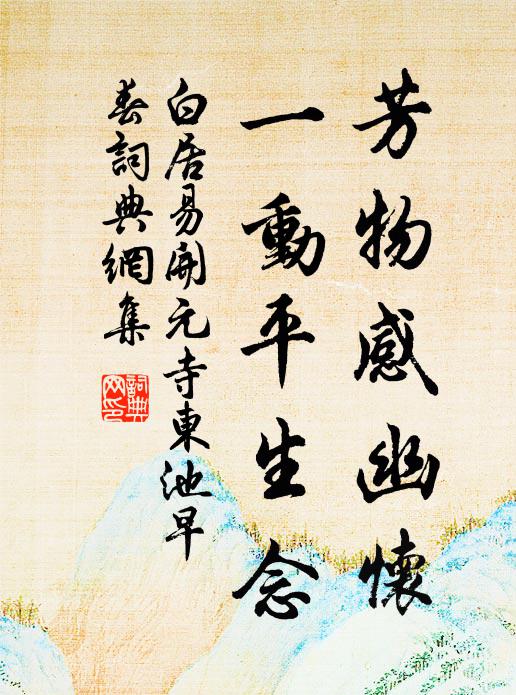 芳物感幽懷
一動平生念
白居易開元寺東池早
春詞典網集
詞典
网印